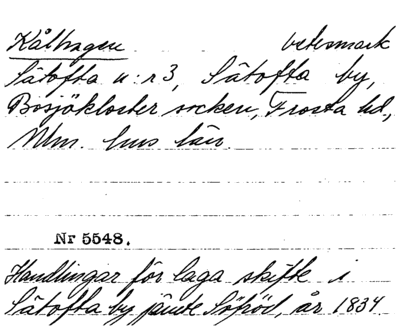 Kålhagen betesmark
Sätofta n:r 3, Sätofta by,
Bosjökloster socken, Frosta hd,
Mlm. hus län.
Nr 5548.
Handlingar för laga skifte i
Sätofta by jämte år 1834